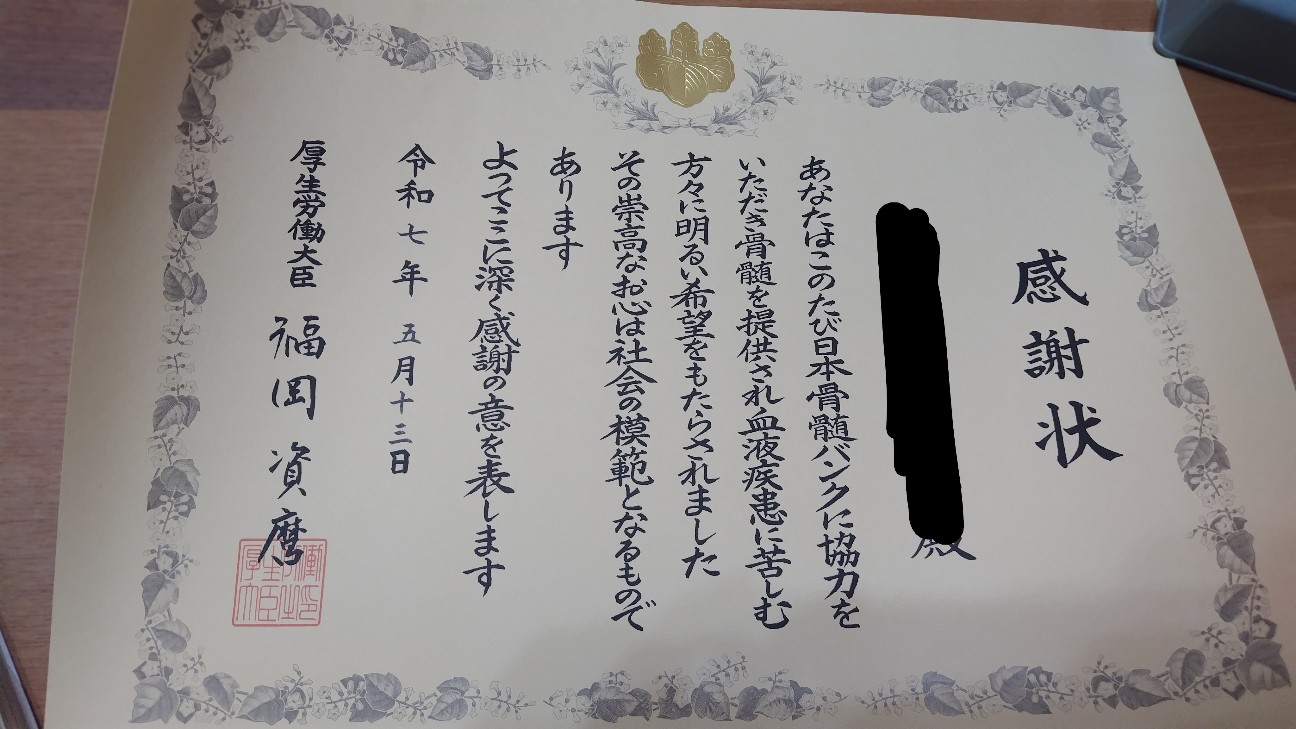 感謝状
殿
あなたはこのたび日本骨髄バンクに協力を
いただき骨髄を提供され血液疾患に苦しむ
方々に明るい希望をもたらされました
その崇高なお心は社会の模範となるもので
あります
よってここに深く感謝の意を表します
令和七年 五月十三日
厚生労働大臣 福岡資麿
厚生労働大臣之印